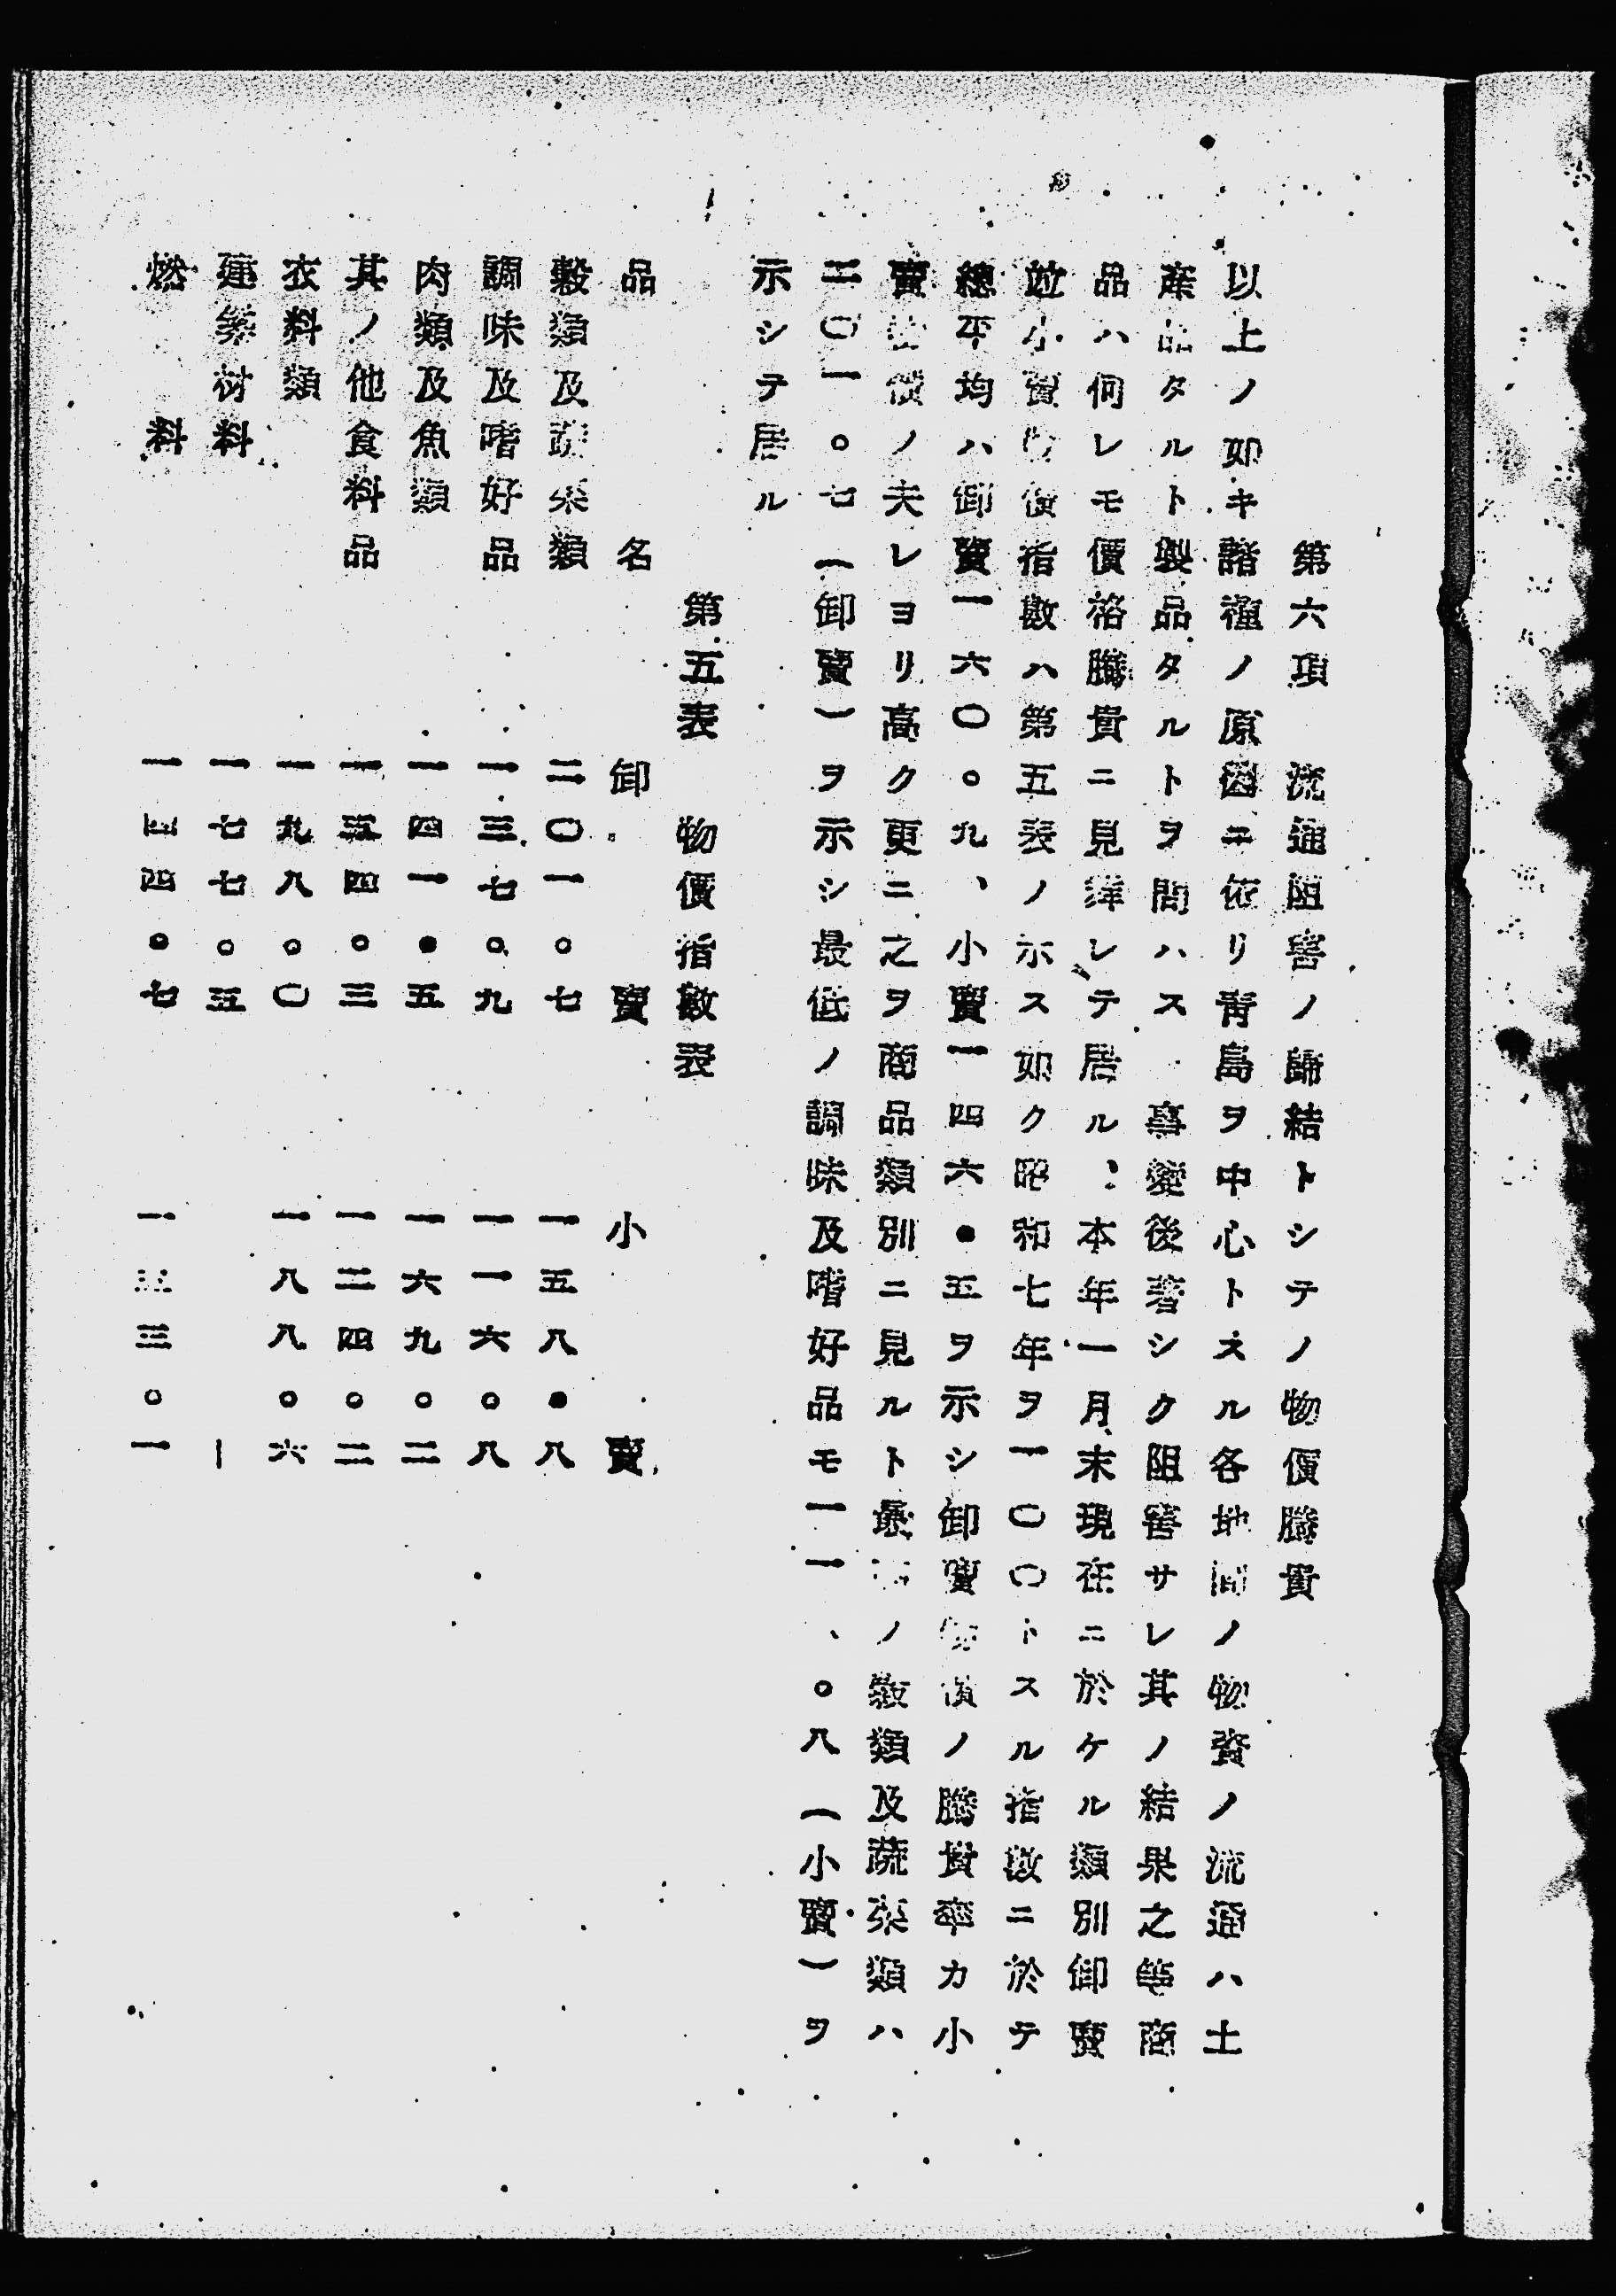 第六項　流通阻害ノ歸結トシテノ物價騰貴
以上ノ如キ諸種ノ原因ニ依リ青島ヲ中心トスル各地間ノ物資ノ流通ハ土
産品タルト製品タルトヲ問ハス　事變後著シク阻害サレ其ノ結果之等商
品ハ何レモ價格騰貴ニ見舞レテ居ル、本年一月末現在ニ於ケル類別卸賣
竝小賣物價指數ハ第五表ノ示ス如ク昭和七年ヲ一〇〇トスル指數ニ於テ
總平均ハ卸賣一六〇。九、小賣一四六●五ヲ示シ卸賣物價ノ騰貴率カ小
賣物價ノ夫レヨリ高ク更ニ之ヲ商品類別ニ見ルト最高ノ穀類及蔬菜類ハ
二〇一。七（卸賣）ヲ示シ最低ノ調味及嗜好品モ一一、。八（小賣）ヲ
示シテ居ル
第五表　物價指數表
品名　卸賣　小賣
穀類及蔬菜類　二〇一。七　一五八●八
調味及嗜好品　一三七。九　一一六。八
肉類及魚類　一四一●五　一六九。二
其ノ他食料品　一五四。三　一二四。二
衣料類　一九八。〇　一八八。六
建築材料　一七七。五　—
燃料　一四四●七　一三三。一